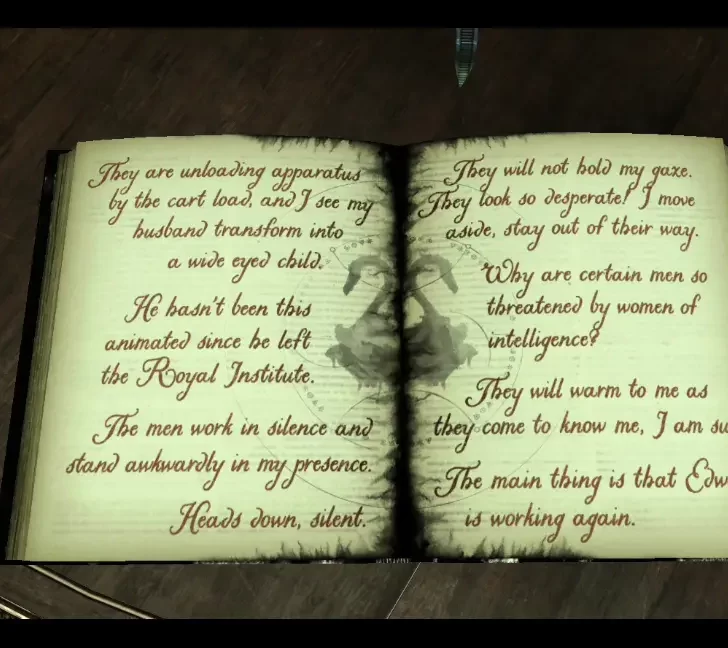 They are unloading apparatus
by the cart load, and I see my
husband transform into
a wide eyed child.
He hasn't been this
animated since he left
the Royal Institute.
The men work in silence and
stand awkwardly in my presence.
Heads down, silent.
They will not hold my gaze.
They look so desperate! I move
aside, stay out of their way.
Why are certain men so
threatened by women of
intelligence?
They will warm to me as
they come to know me, I am su
The main thing is that Edw
is working again.